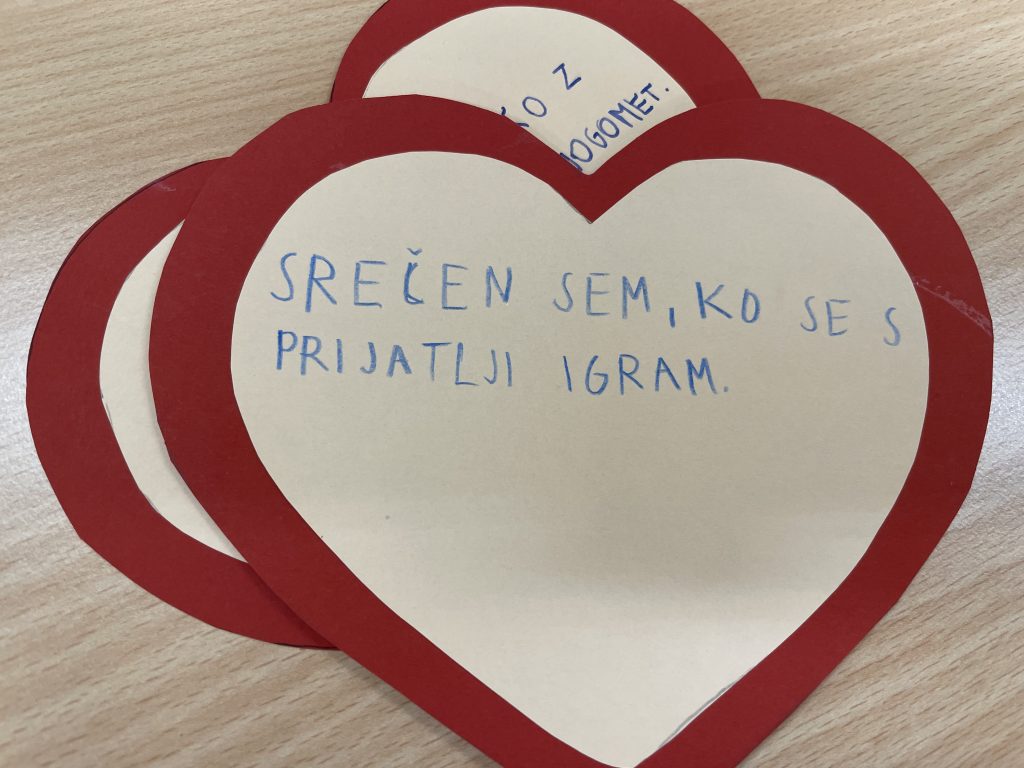 KO Z
NOGOMET.
SREČEN SEM, KO SE S
PRIJATLJI IGRAM.